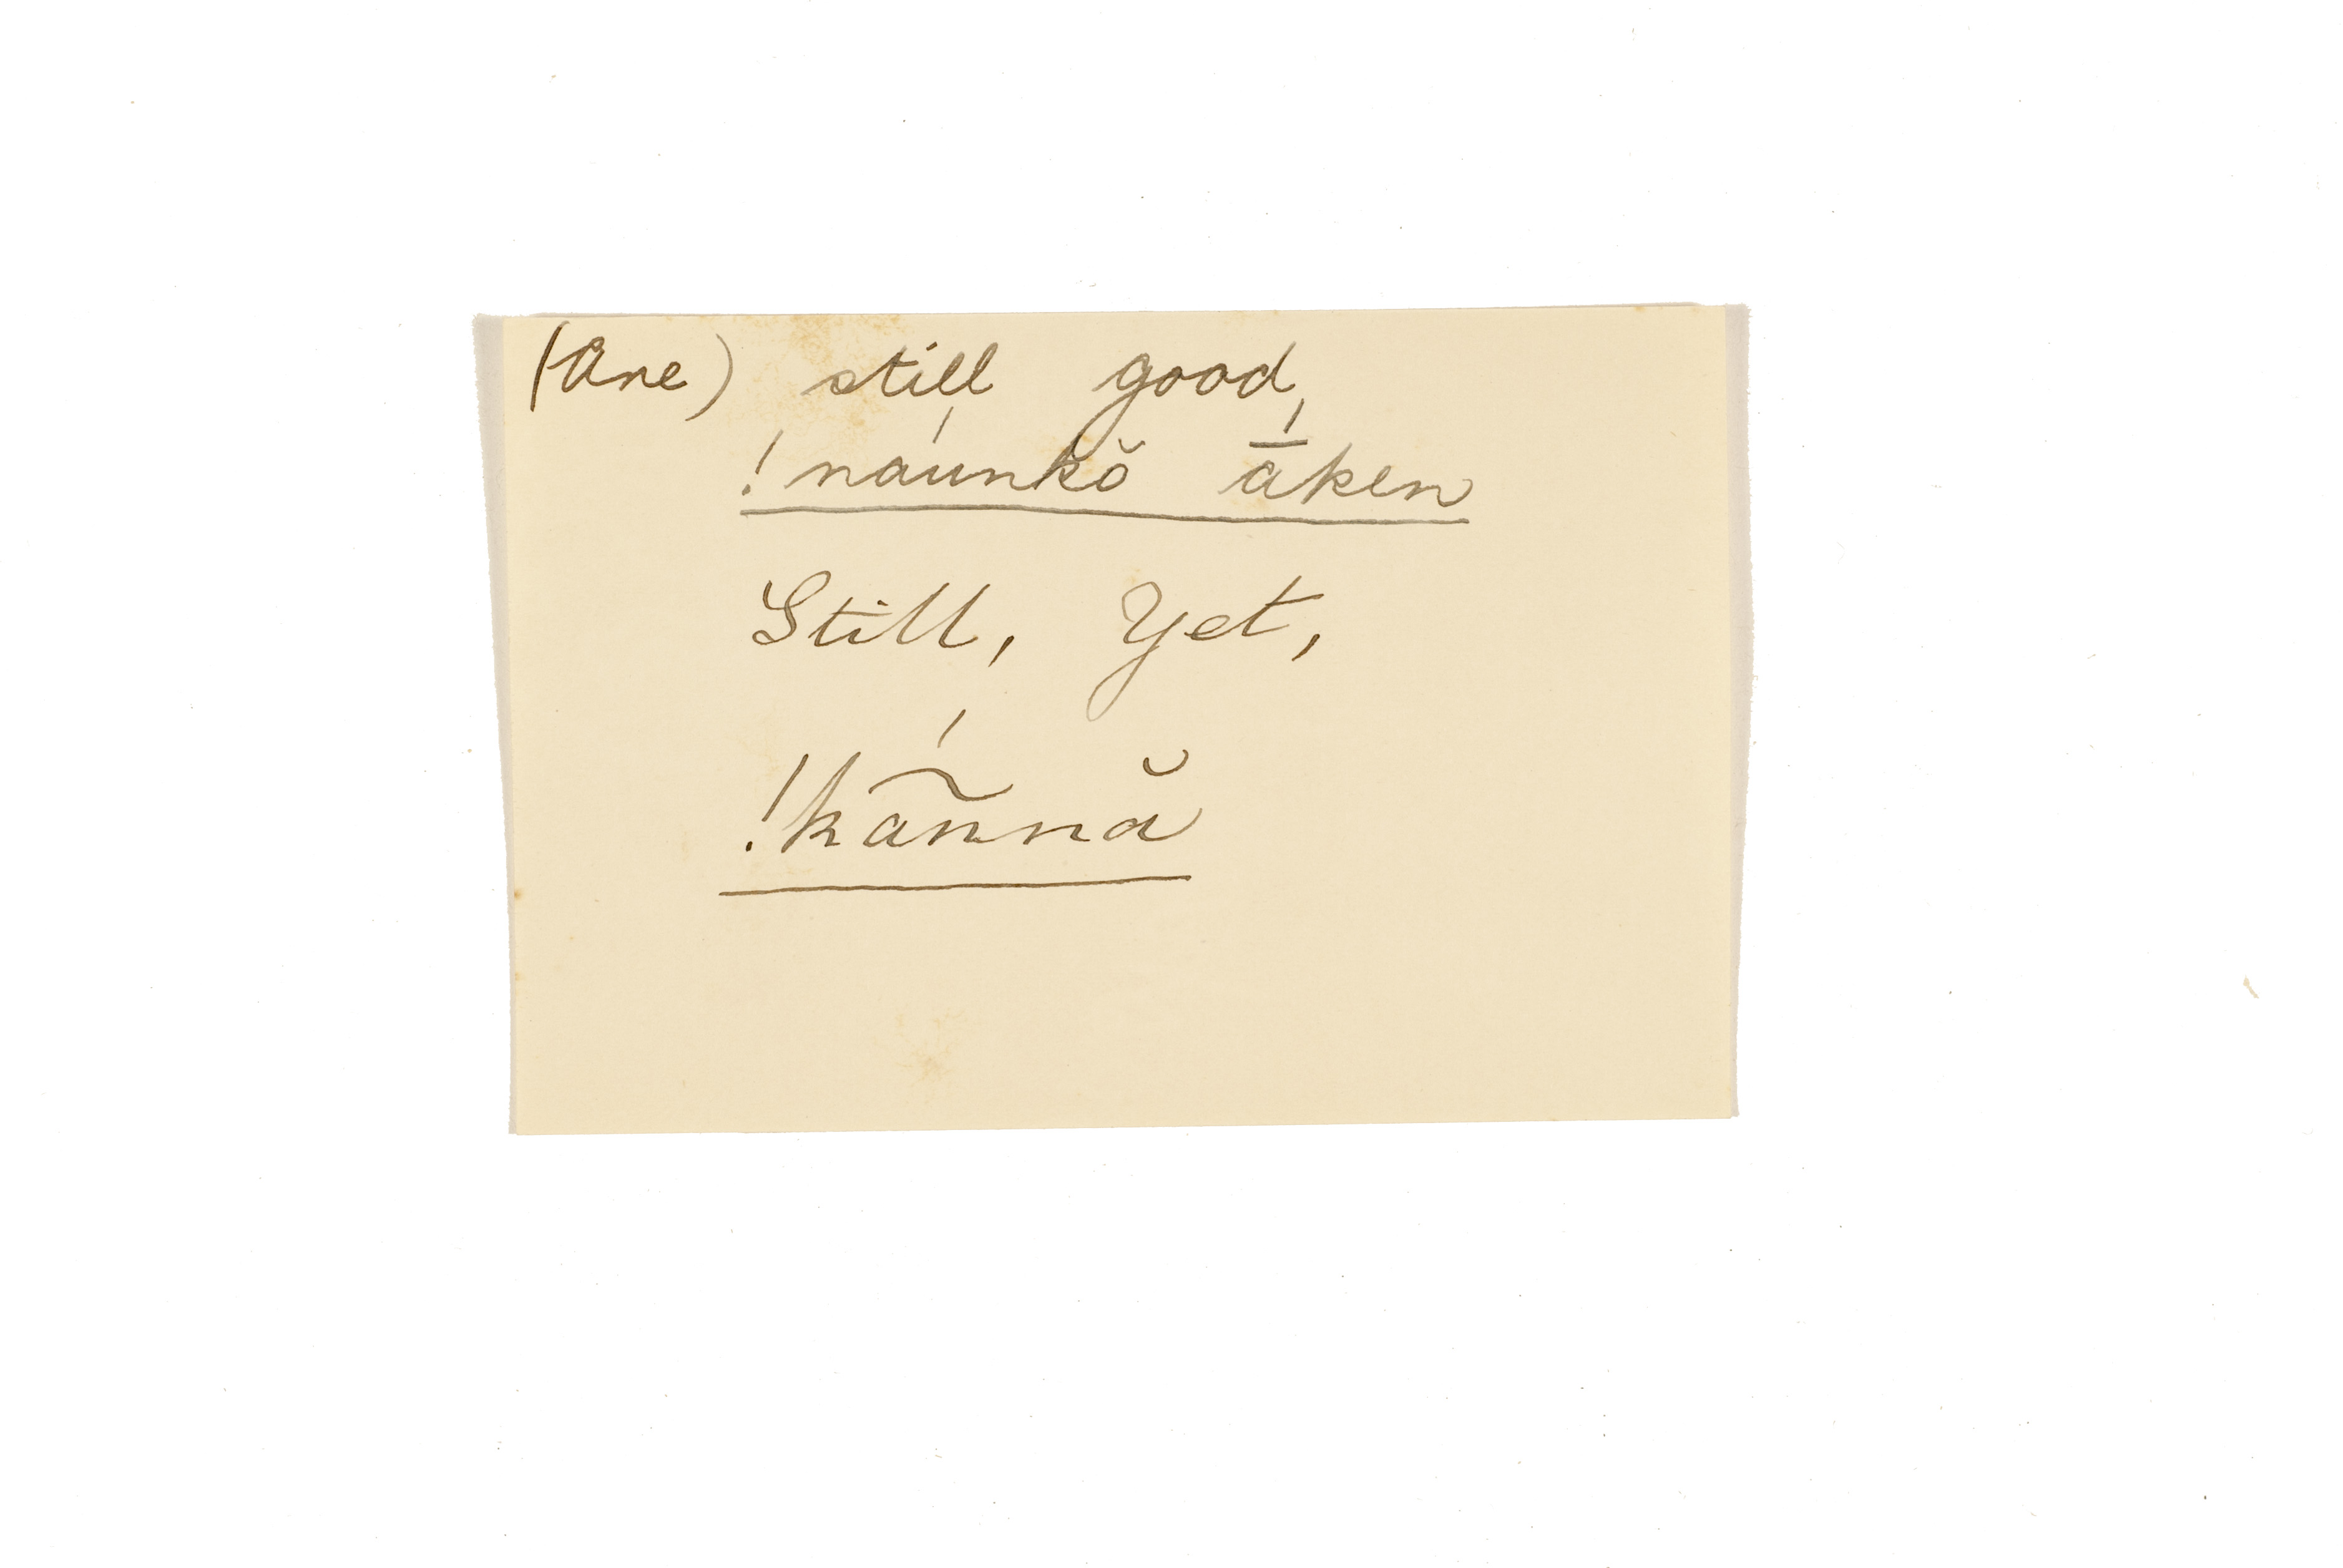 (Are) still good,
!náunkŏ ā́ken
Still, Yet,
!kã́nnă